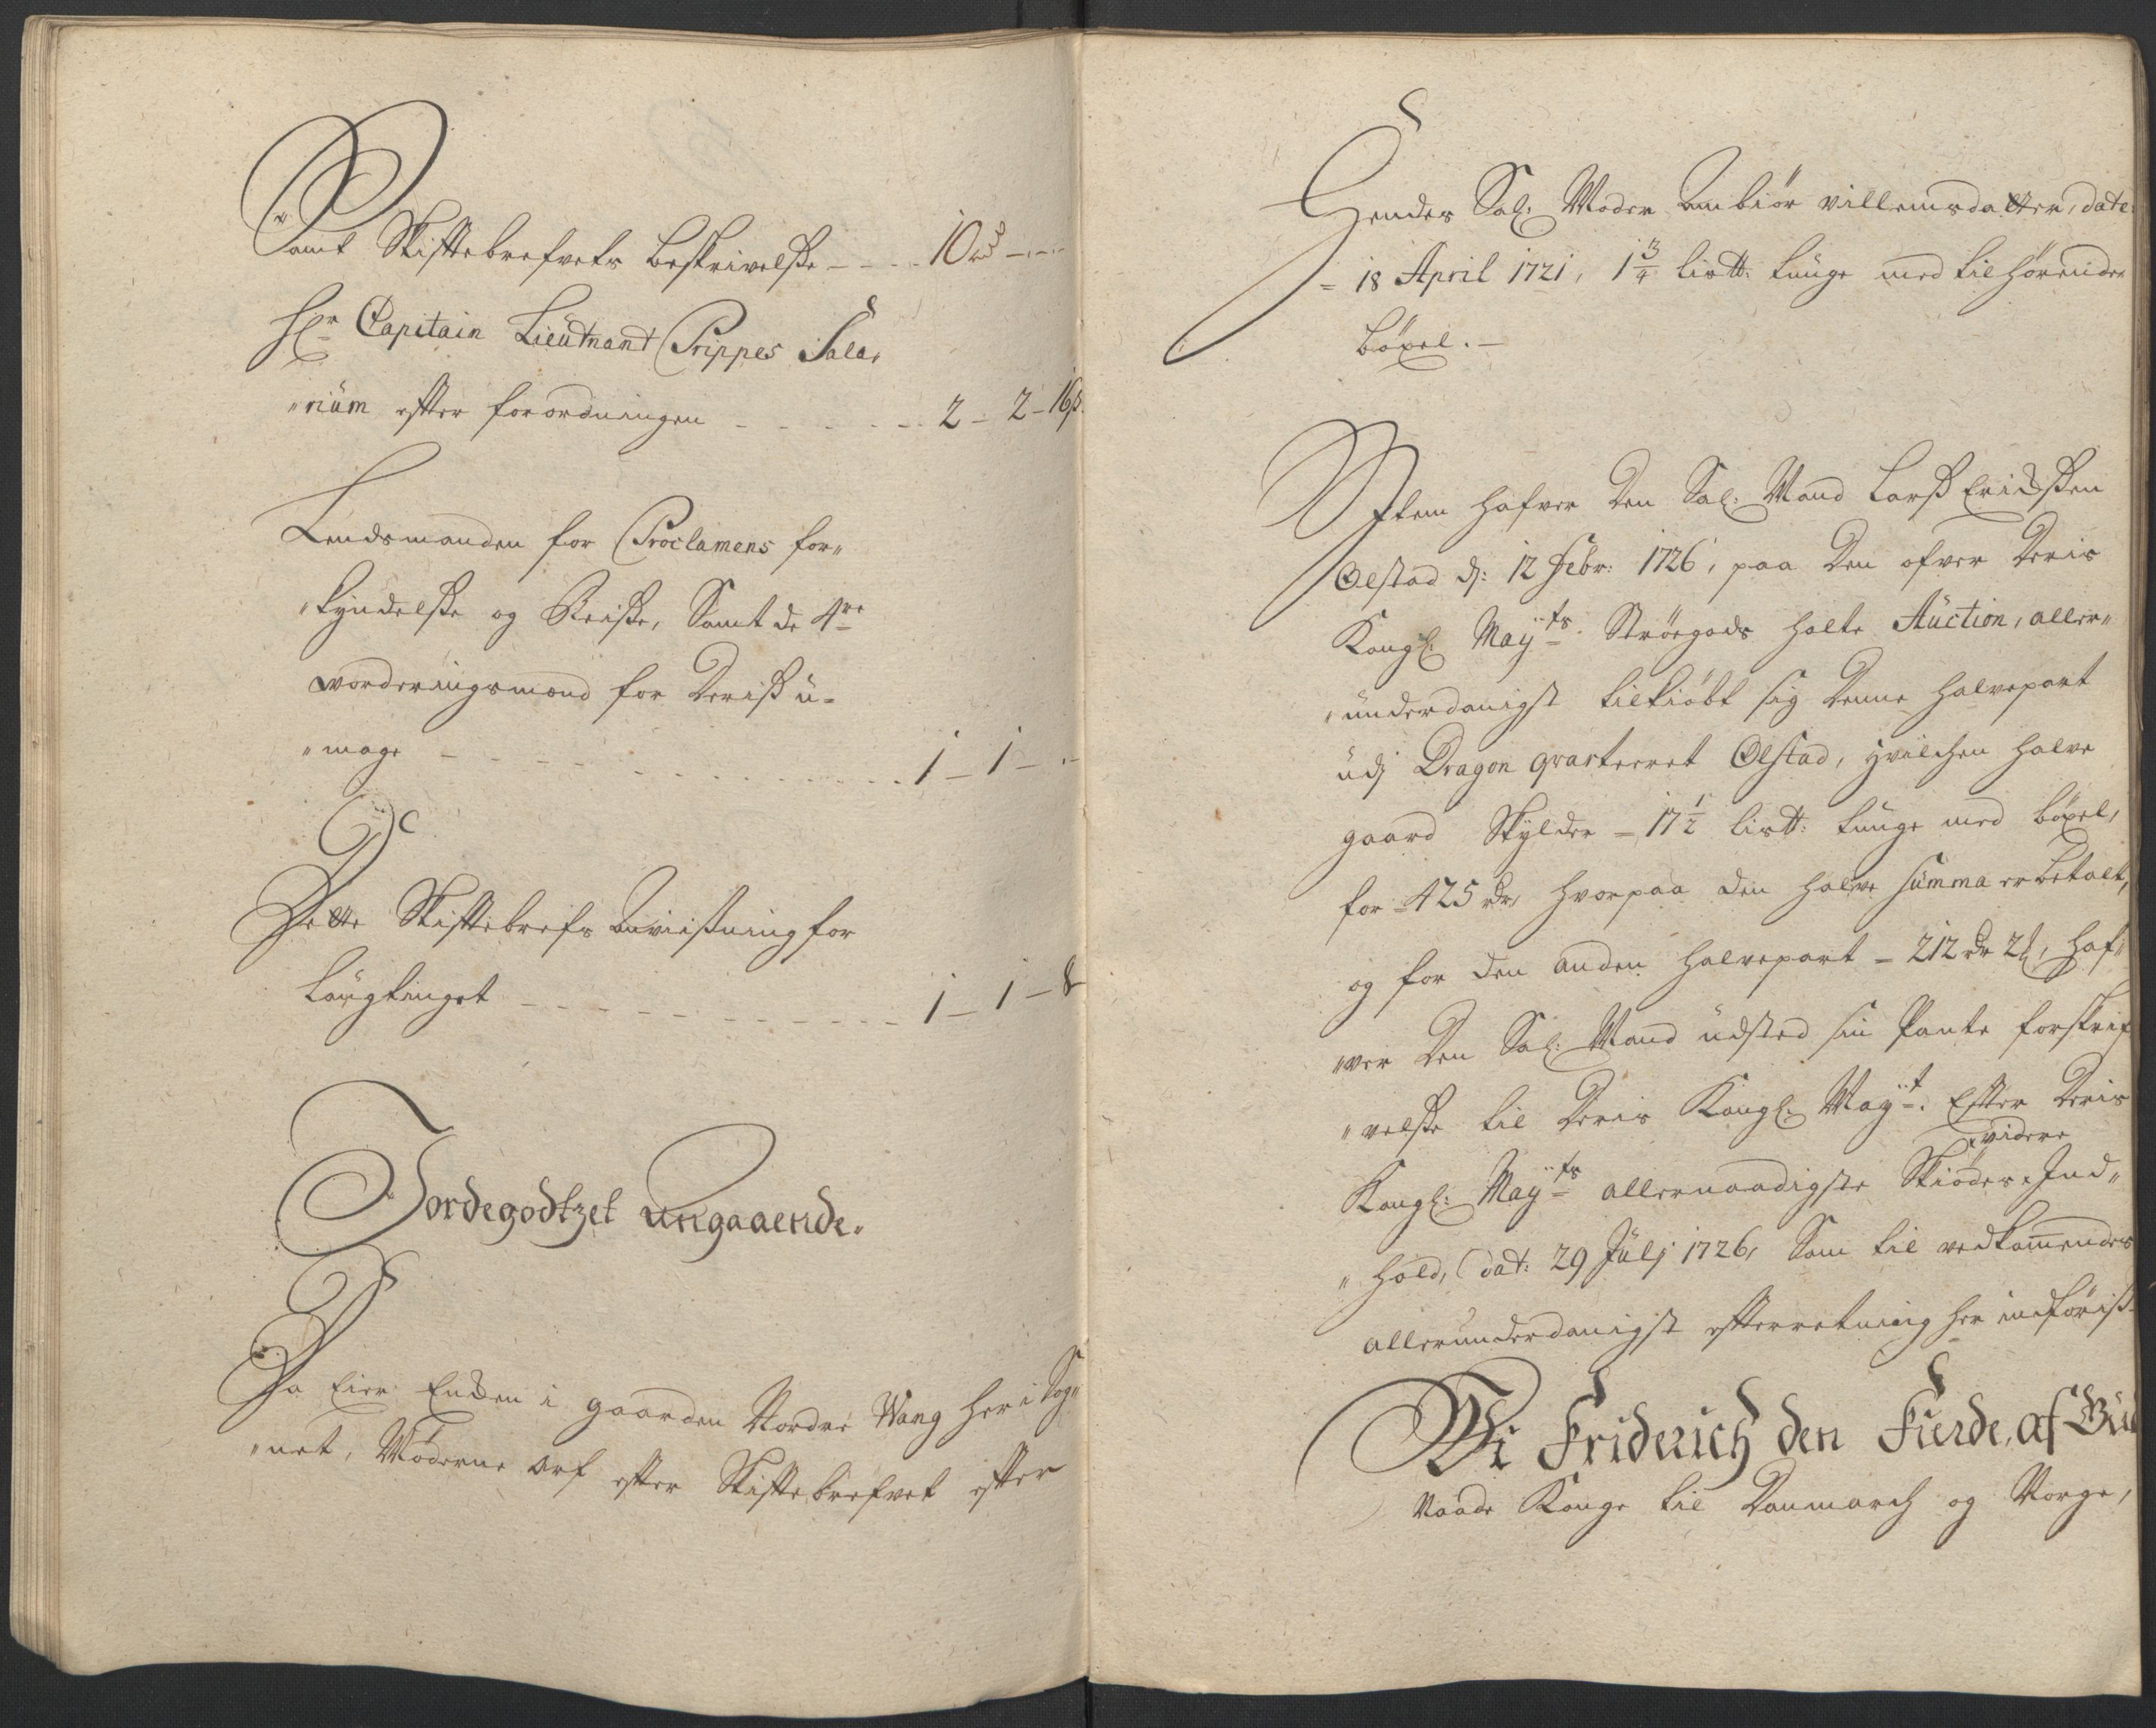 Samt Skiftebrefvets Beskrivelße - - - 10 rd - -
Hr Capitain Lieutnant Prippes Sala,
"rium efter forordningen - - - - - - 2 - 2 - 16 ß.
Lendsmanden for Proclamens for"
"kyndelße og Reiße, Samt de 4re
worderingsmænd for Deriß u-
"mage - - - - - - - - - - - 1 - 1 - -
Dette Skiftebrefs Anviißning for
Laugtinget - - - - - - - - - 1 - 1 - 8
Jordegodtzet angaaende.
Da Eier Encken i gaarden Nordre Wang her i Sog"
"net, Møderne Arf efter Skiftebrefvet efter
Hendes Sal: Moder Anbiør villemsdatter, date:
= 18 April 1721, 1 3/4 lis℔: tunge med tilhørende
böxel. -
Item hafver Den Sal: Mand Larß Erichßen
Ølstad d: 12 Febr: 1726, paa Den ofver Deris
Kongl: Mayts Strøegods holte Auction, aller"
"underdanigst tilkiøbt sig Denne halvepart
udj Dragon qvarteeret Ølstad, hvilchen halve
gaard Skylder = 17 1/2 lis℔: tunge med böxel,
for = 425 rdr, hvorpaa den halve Summa er betalt,
og for den anden halvepart = 212 rdr 2 ℔, haf"
"ver Den Sal: Mand udsted sin Pante forskrif
"velße til Deris Kongl: Mayt: Efter Deris
Kongl: Mayts allernaadigste Skiødes videre Ind"
"hold, dat: 29 Julj 1726, Som til vedkommendes
allerunderdanigst efterretning her indføriß -
Wi Friderich den Fierde, af Gud
Naade Konge til Danmarch og Norge,